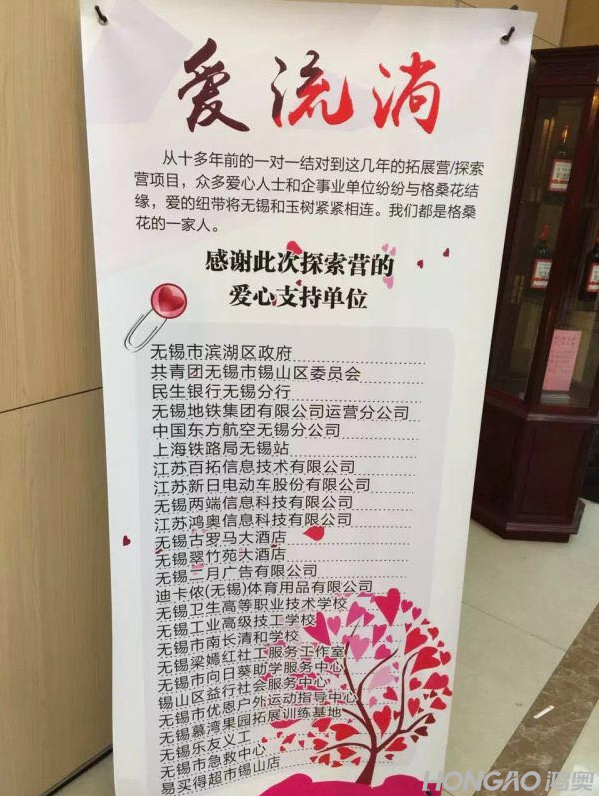 爱流淌
从十多年前的一对一结对到这几年的拓展营/探索
营项目，众多爱心人士和企事业单位纷纷与格桑花结
缘，爱的纽带将无锡和玉树紧紧相连。我们都是格桑
花的一家人。
感谢此次探索营的
爱心支持单位
无锡市滨湖区政府
共青团无锡市锡山区委员会
民生银行无锡分行
无锡地铁集团有限公司运营分公司
中国东方航空无锡分公司
上海铁路局无锡站
江苏百拓信息技术有限公司
江苏新日电动车股份有限公司
无锡两端信息科技有限公司
江苏鸿奥信息科技有限公司
无锡古罗马大酒店
无锡翠竹苑大酒店
无锡二月广告有限公司
迪卡侬(无锡)体育用品有限公司
无锡卫生高等职业技术学校
无锡工业高级技工学校
无锡市南长清和学校
无锡梁嫣红社工服务工作室
无锡市向日葵助学服务中心
锡山区益行社会服务中心
无锡市优恩户外运动指导中心
无锡慕湾果园拓展训练基地
无锡乐友义工
无锡市急救中心
易买得超市锡山店
HONGAO鸿奥